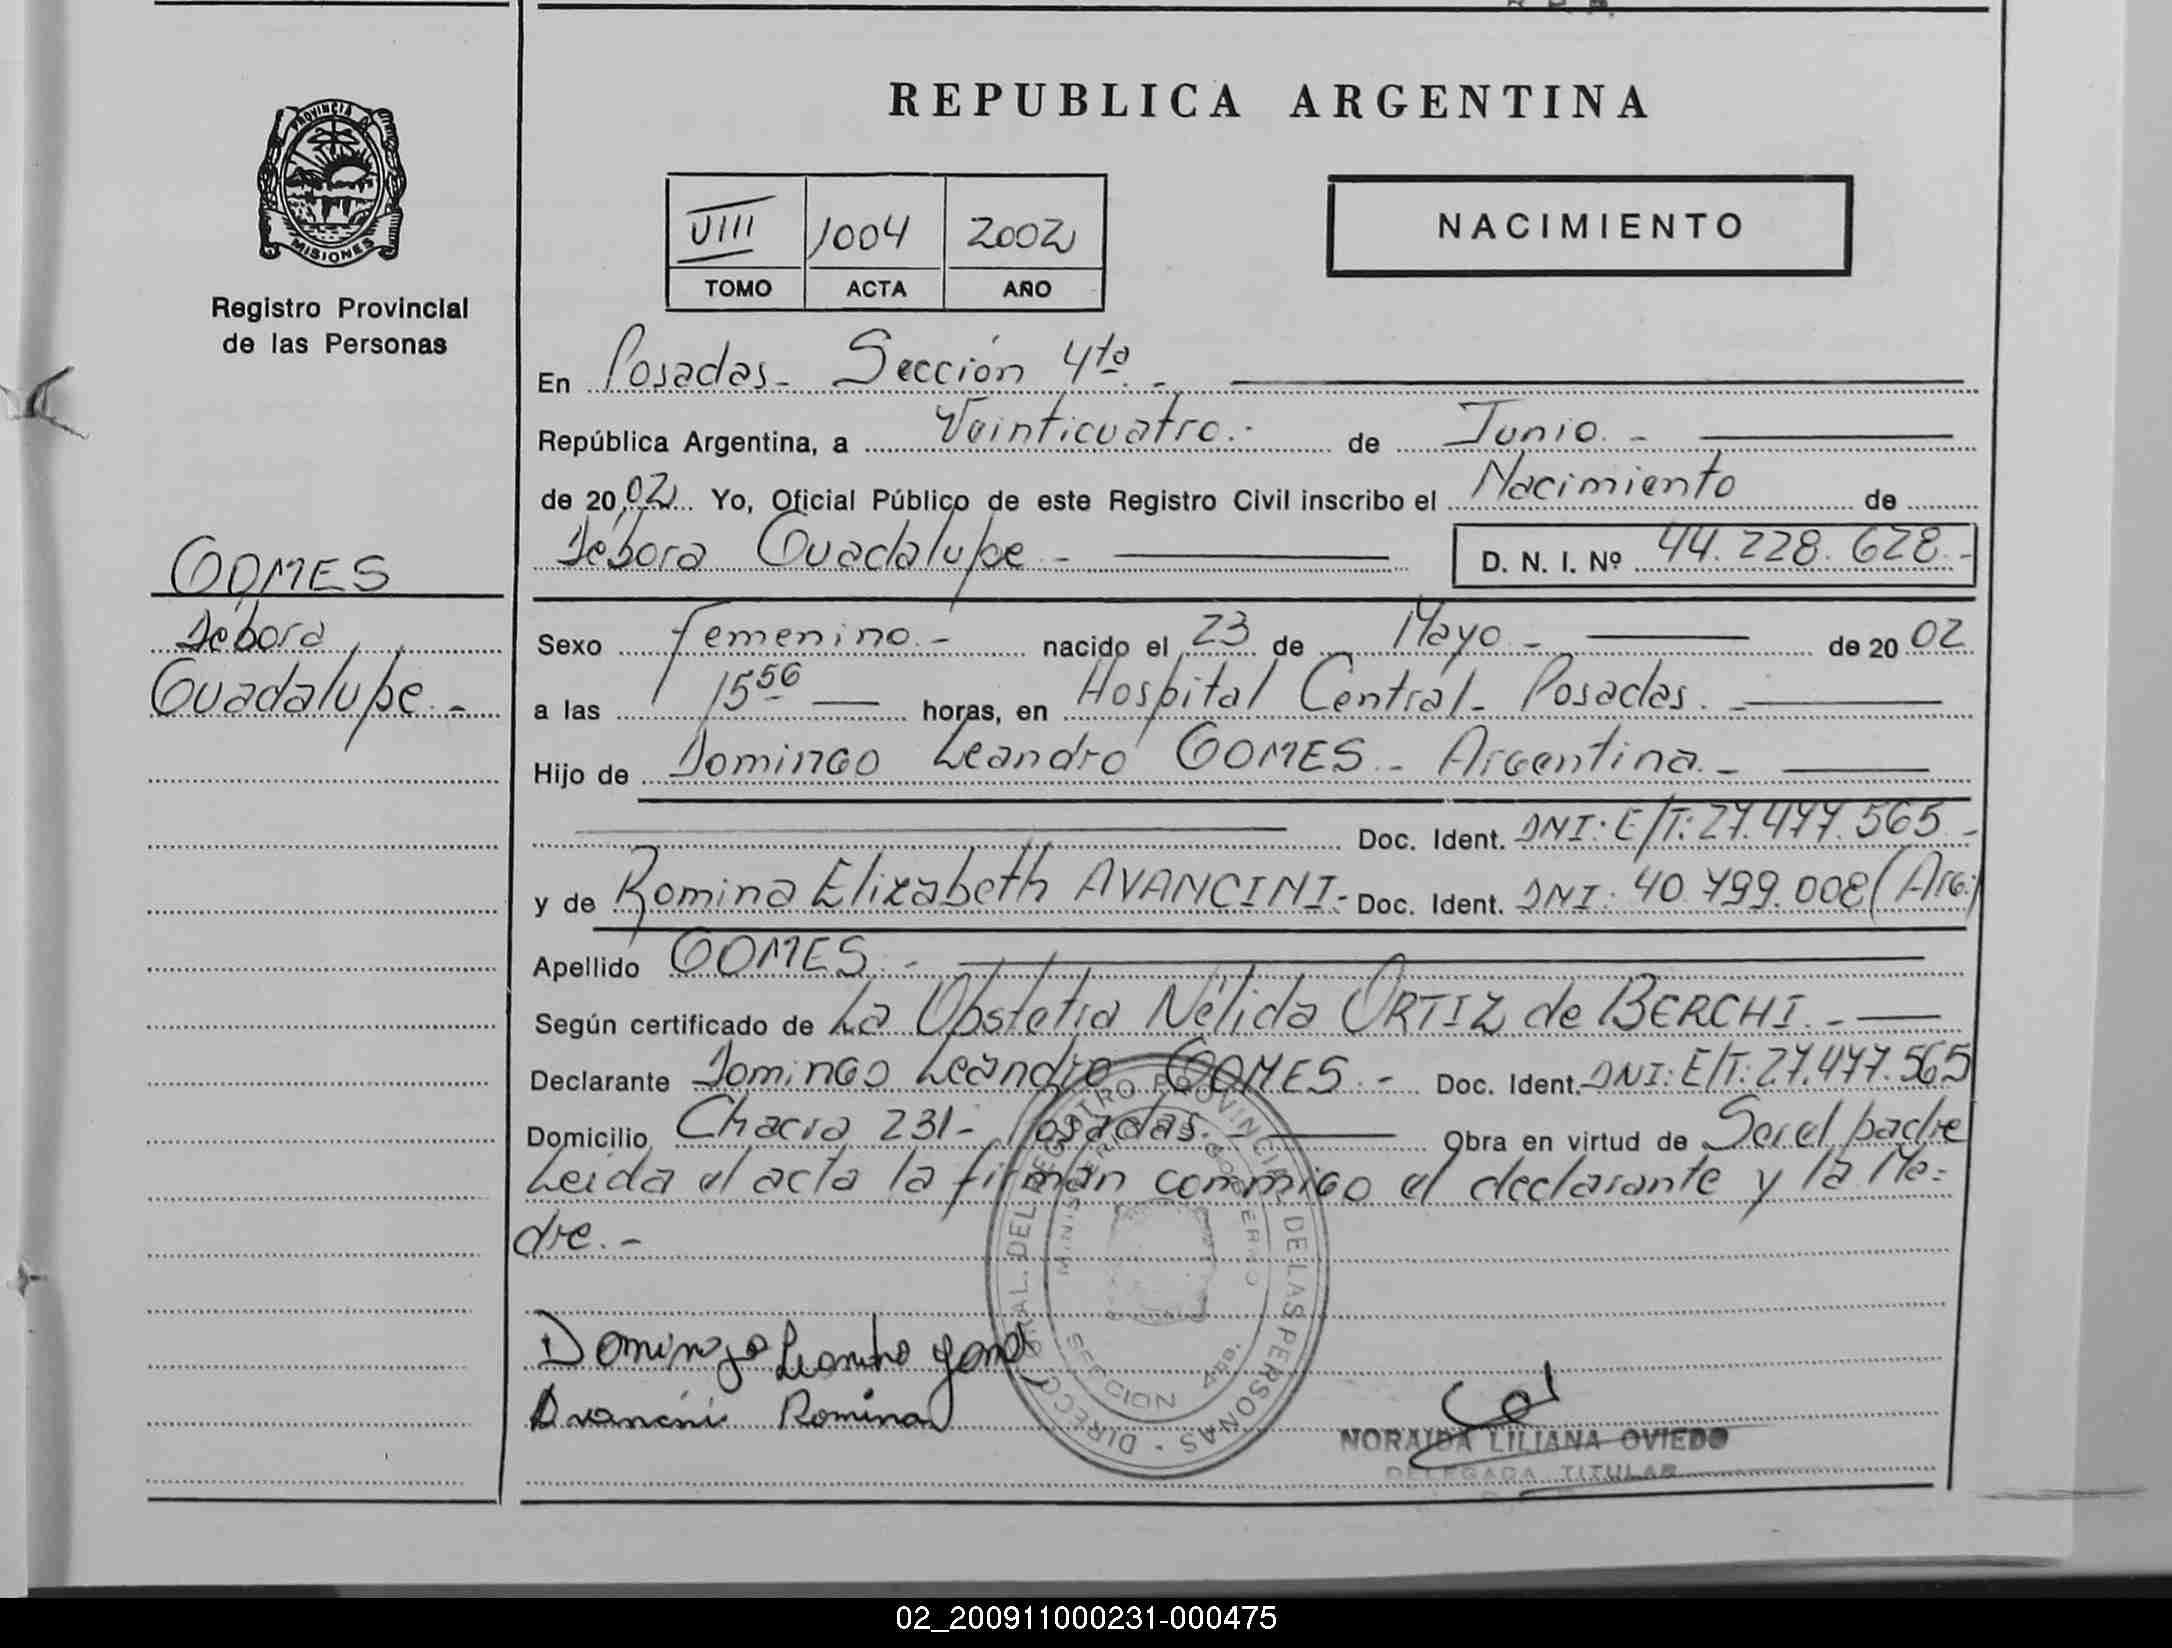 PROVINCIA DE
MISIONES
Registro Provincial
de las Personas
GOMES
Débora
Guadalupe.-
REPUBLICA ARGENTINA
VIII 1004 2002
TOMO ACTA AÑO
NACIMIENTO
En Posadas- Sección 4ta.-
República Argentina, a Veinticuatro.- de Junio.-
de 2002 Yo, Oficial Público de este Registro Civil inscribo el Nacimiento de
Débora Guadalupe.- D. N. I. Nº 44.228.628.-
Sexo femenino.- nacido el 23 de Mayo.- de 2002
a las 15 56 horas, en Hospital Central- Posadas.-
Hijo de Domingo Leandro GOMES- Argentina.-
Doc. Ident. DNI: E/T: 27.477.565.-
y de Romina Elizabeth AVANCINI.- Doc. Ident. DNI: 40.799.008 (Arg.)
Apellido GOMES.-
Según certificado de La Obstetra Nélida ORTIZ de BERCHI.-
Declarante Domingo Leandro GOMES.- Doc. Ident. DNI: E/T: 27.477.565
Domicilio Chacra 231- Posadas.- Obra en virtud de Ser el padre
Leida el acta la firman conmigo el declarante y la Ma-
dre.-
Domingo Leandro Gomes
Avancini Romina
DIRECC GRAL. DEL REGISTRO PROVINCIAL DE LAS PERSONAS -
SECCION 4ta.
NORAIDA LILIANA OVIEDO
DELEGADA TITULAR
02_200911000231-000475